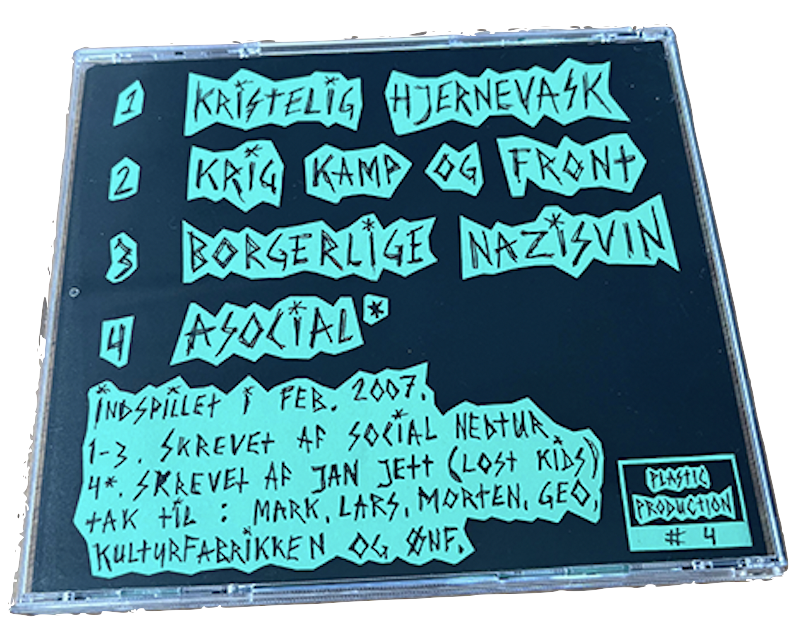 1 KRISTELIG HJERNEVASK
2 KRIG KAMP OG FRONT
3 BORGERLIGE NAZISVIN
4 ASOCIAL*
INDSPILLET I FEB. 2007.
1-3. SKREVET AF SOCIAL NEDTUR
4*. SKREVET AF JAN JETT (LOST KIDS)
TAK TIL : MARK, LARS, MORTEN, GEO,
KULTURFABRIKKEN OG ØNF.
PLASTIC
PRODUCTION
# 4